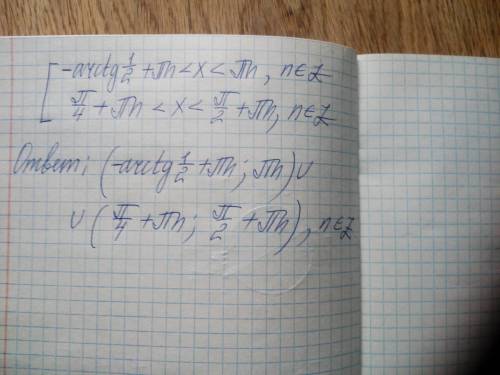 [ -arctg 1/2 + πn < x < πn, n∈Z
π/4 + πn < x < π/2 + πn, n∈Z
Ответ: (-arctg 1/2 + πn; πn) ∪
∪ (π/4 + πn; π/2 + πn), n∈Z